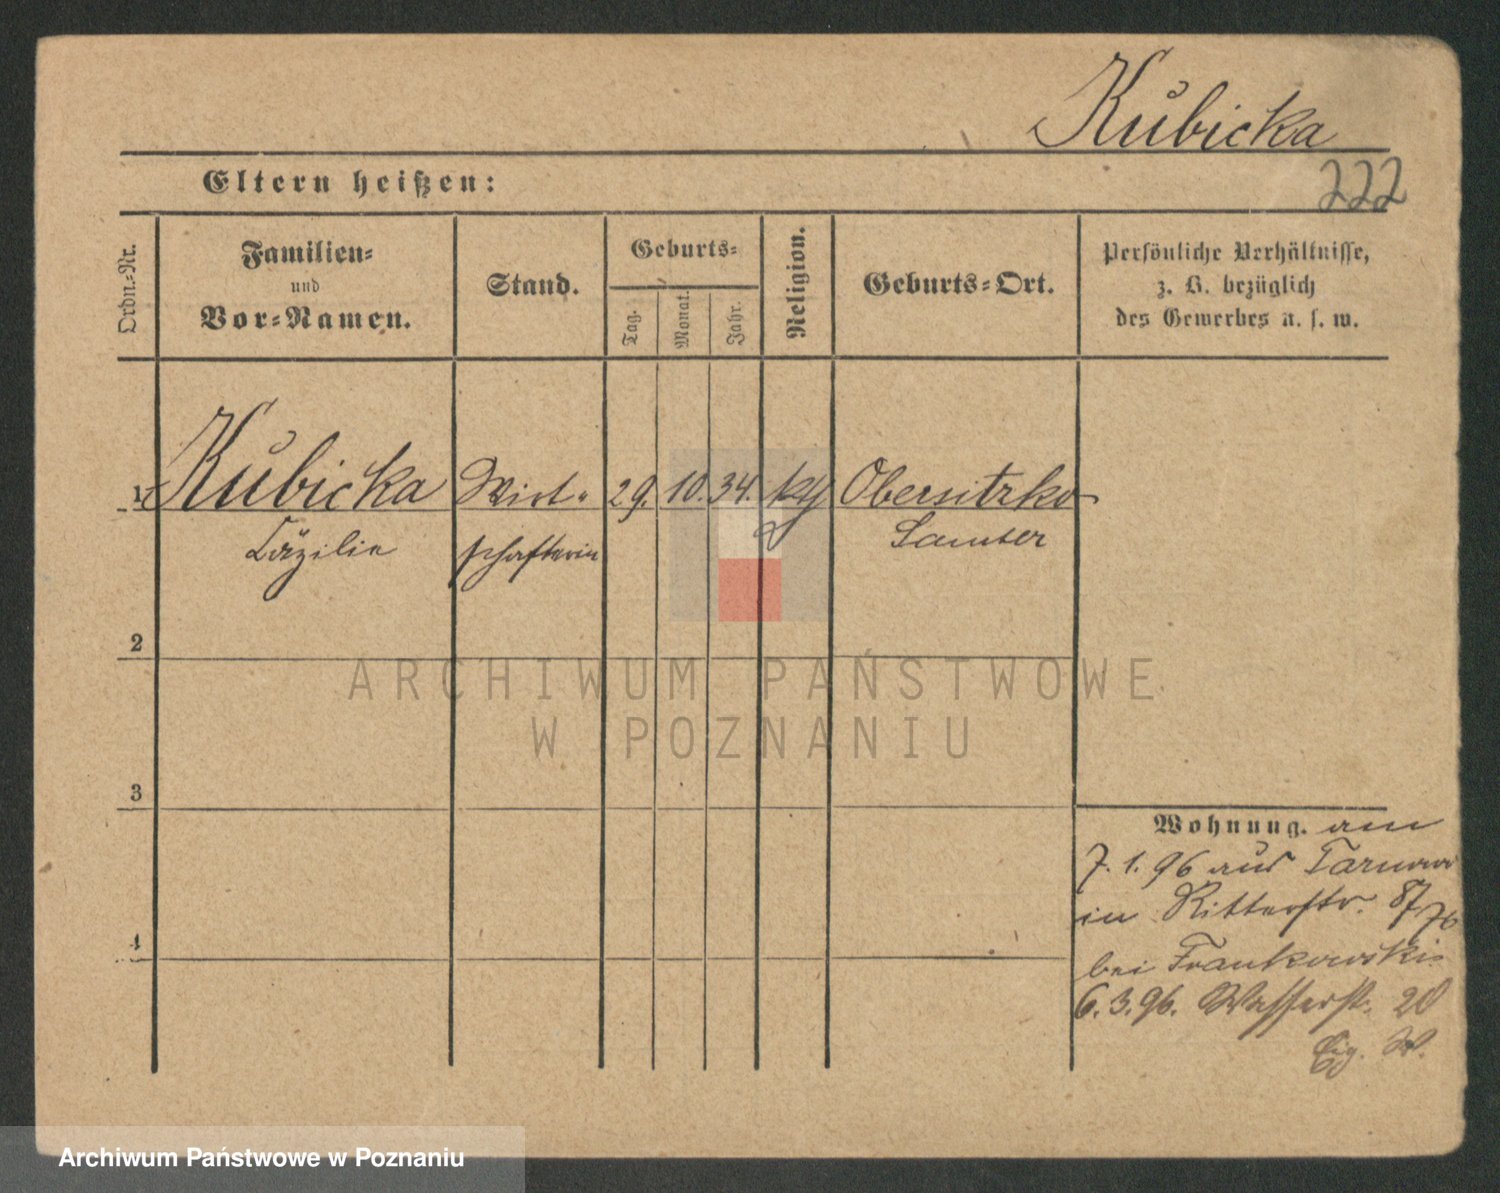 Kubicka
Eltern heißen:
222
Ordn.-Nr.
Familien-
und
Vor-Namen.
Stand.
Geburts-
Tag.
Monat.
Jahr.
Religion.
Geburts-Ort.
Persönliche Verhältnisse,
z. B. bezüglich
des Gewerbes u. s. w.
1 Kubicka Wirt- 29. 10. 34. Obersitzko
Cäzilie schafterin Samter
2
3
4
Wohnung. am
7. 1. 96 aus Tarnowo
in Ritterstr.
bei Frankowski
6. 3. 96. Wasserstr. 20
ARCHIWUM PAŃSTWOWE
W POZNANIU
Archiwum Państwowe w Poznaniu